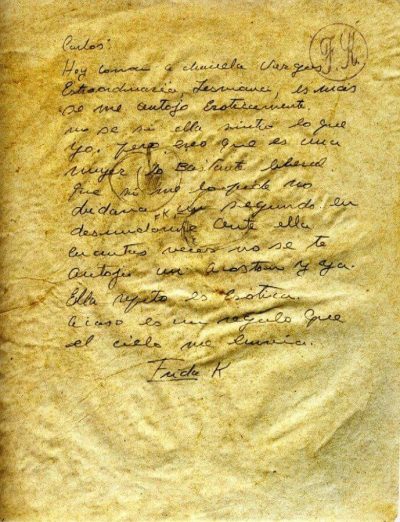 F. K.
Carlos:
Hoy conocí a chavela Vargas
Extraordinaria, Lesviana, es más
se me antojo Eroticamente.
no se si ella sintió lo que
yo. pero creo que es una
mujer lo Bastante liberal
que si me lo pide no
dudaria un segundo en
desnudarme ante ella
cuantas veces no se te
antoja un acoston y ya.
Ella repito es Erotica.
acaso es un regalo que
el cielo me envia.
Frida K